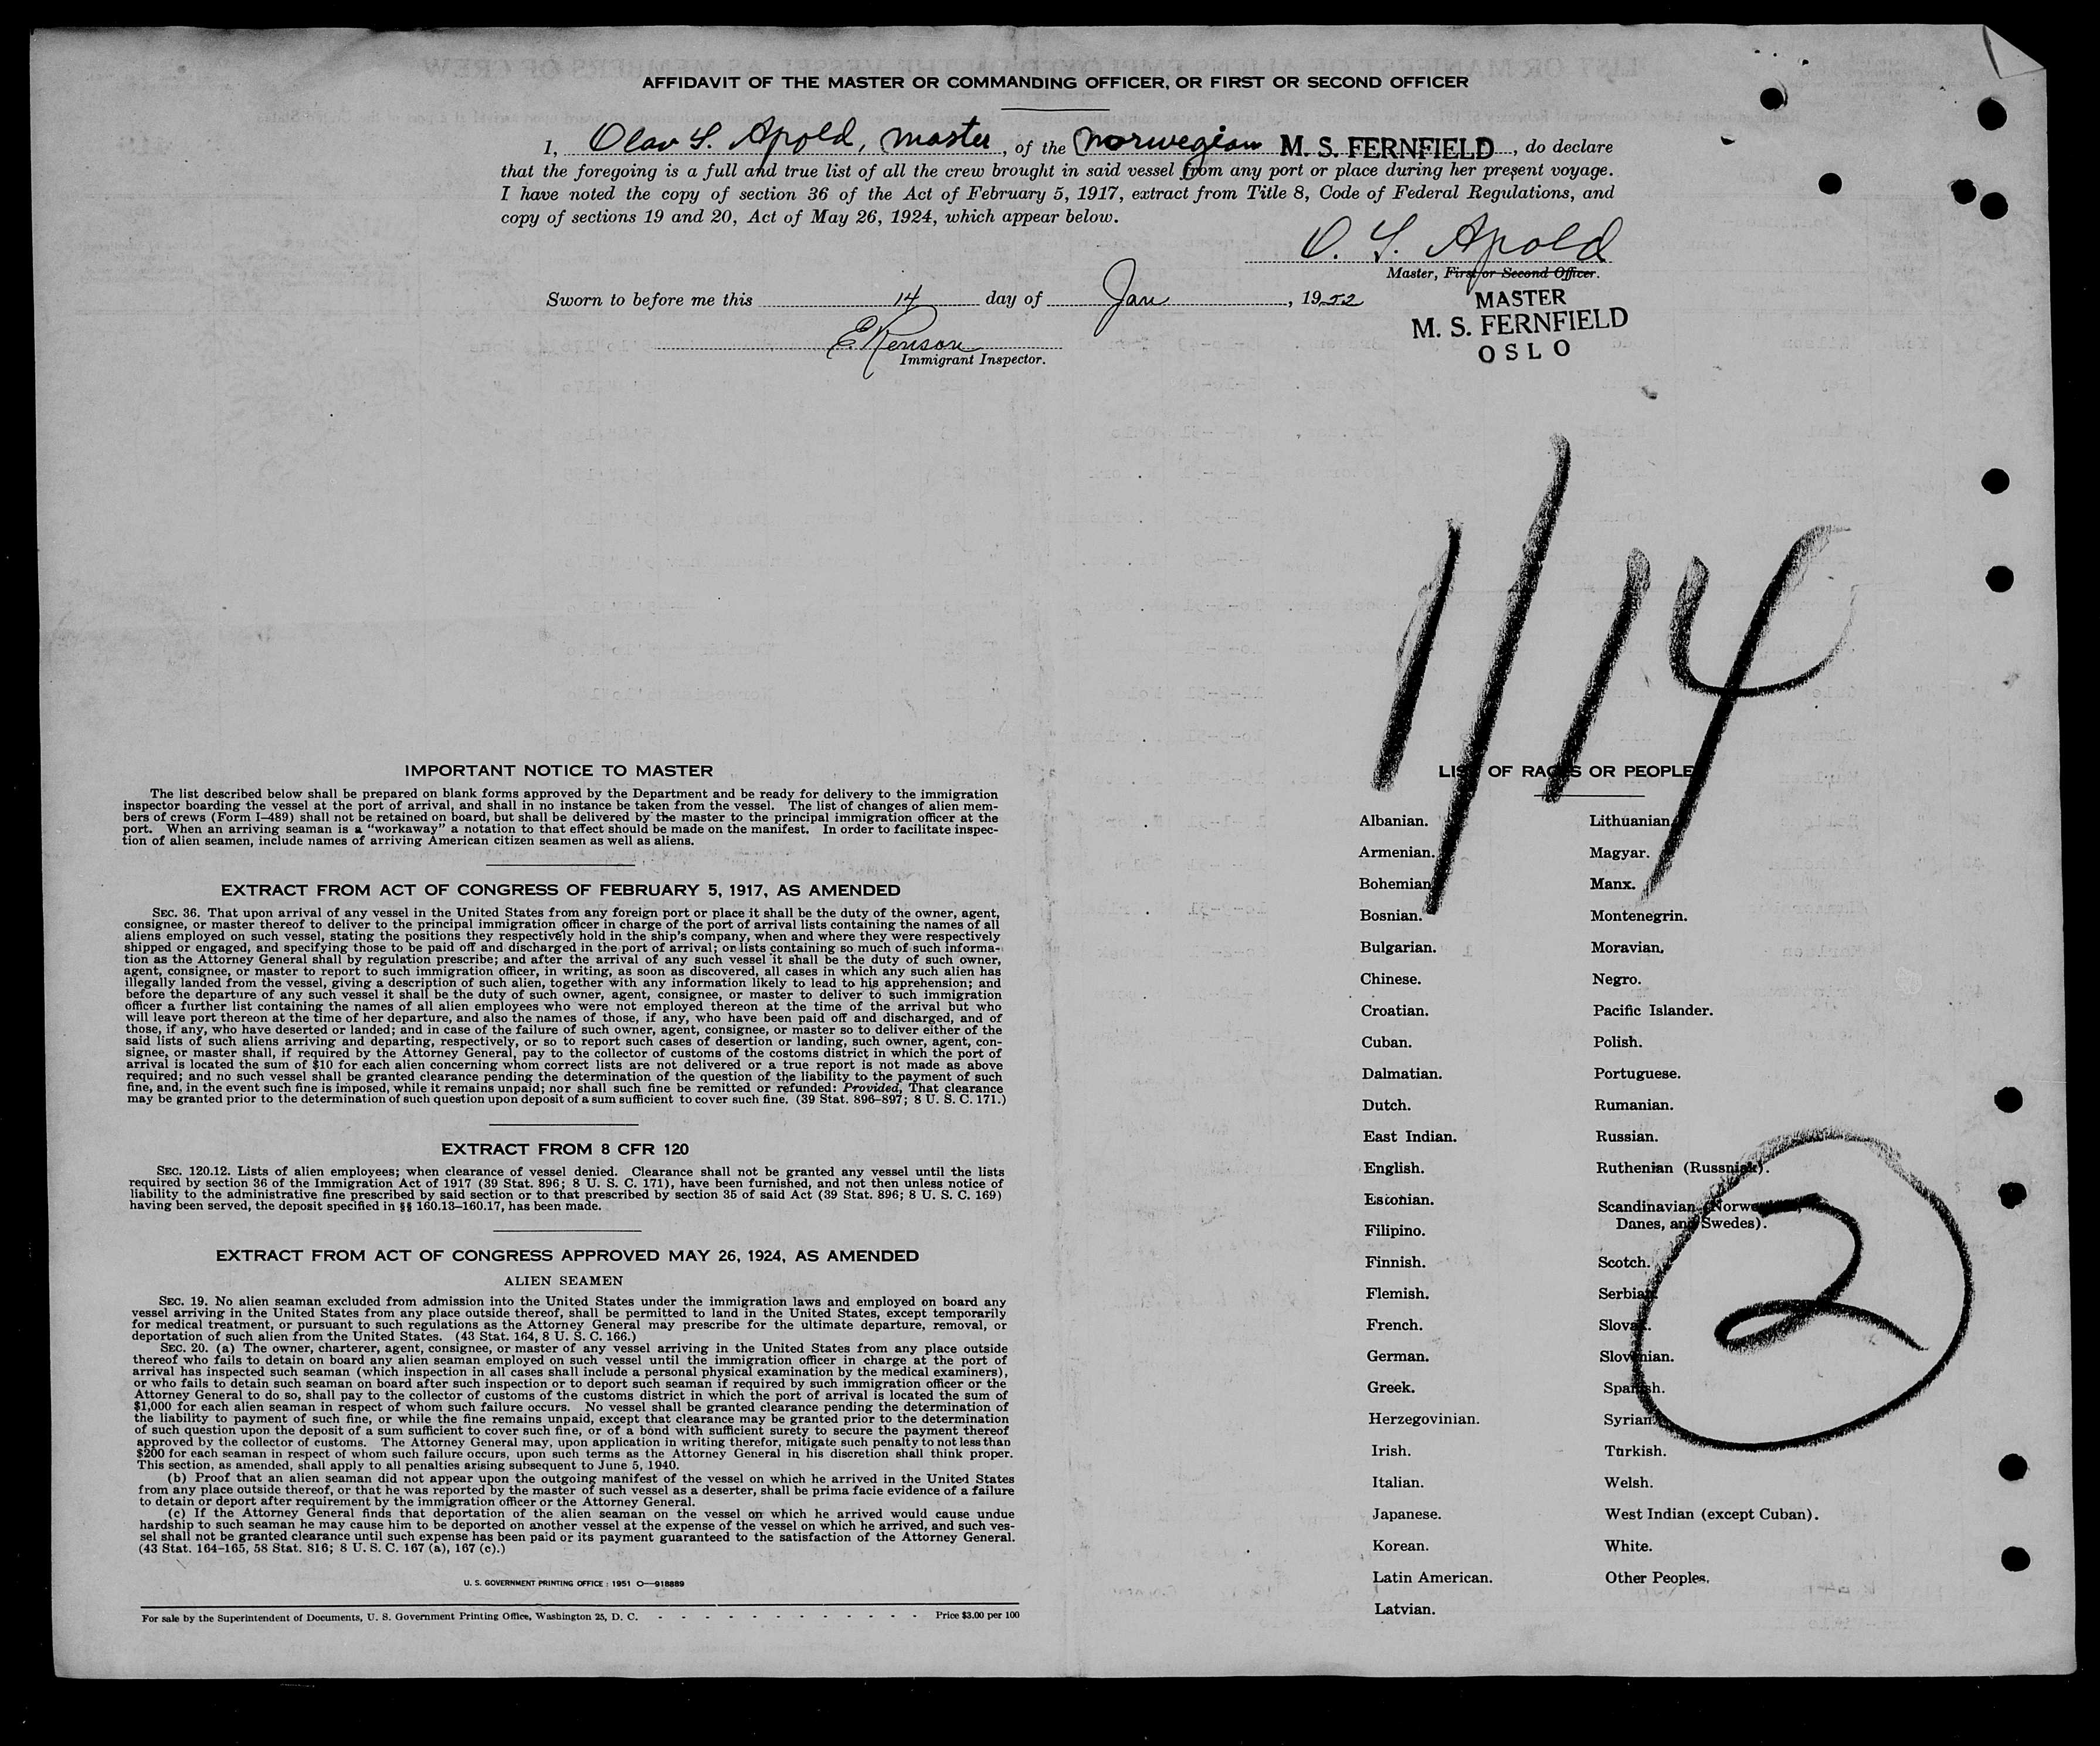 AFFIDAVIT OF THE MASTER OR COMMANDING OFFICER, OR FIRST OR SECOND OFFICER
I, Olav S. Apold, Master, of the Norwegian M. S. FERNFIELD, do declare
that the foregoing is a full and true list of all the crew brought in said vessel from any port or place during her present voyage.
I have noted the copy of section 36 of the Act of February 5, 1917, extract from Title 8, Code of Federal Regulations, and
copy of sections 19 and 20, Act of May 26, 1924, which appear below.
O. S. Apold
Master, First or Second Officer.
Sworn to before me this 14 day of Jan, 1952
MASTER
M. S. FERNFIELD
OSLO
Immigrant Inspector.
1/14
IMPORTANT NOTICE TO MASTER
The list described below shall be prepared on blank forms approved by the Department and be ready for delivery to the immigration
inspector boarding the vessel at the port of arrival, and shall in no instance be taken from the vessel. The list of changes of alien mem-
bers of crews (Form I-489) shall not be retained on board, but shall be delivered by the master to the principal immigration officer at the
port. When an arriving seaman is a "workaway" a notation to that effect should be made on the manifest. In order to facilitate inspec-
tion of alien seamen, include names of arriving American citizen seamen as well as aliens.
EXTRACT FROM ACT OF CONGRESS OF FEBRUARY 5, 1917, AS AMENDED
SEC. 36. That upon arrival of any vessel in the United States from any foreign port or place it shall be the duty of the owner, agent,
consignee, or master thereof to deliver to the principal immigration officer in charge of the port of arrival lists containing the names of all
aliens employed on such vessel, stating the positions they respectively hold in the ship's company, when and where they were respectively
shipped or engaged, and specifying those to be paid off and discharged in the port of arrival; or lists containing so much of such informa-
tion as the Attorney General shall by regulation prescribe; and after the arrival of any such vessel it shall be the duty of such owner,
agent, consignee, or master to report to such immigration officer, in writing, as soon as discovered, all cases in which any such alien has
illegally landed from the vessel, giving a description of such alien, together with any information likely to lead to his apprehension; and
before the departure of any such vessel it shall be the duty of such owner, agent, consignee, or master to deliver to such immigration
officer a further list containing the names of all alien employees who were not employed thereon at the time of the arrival but who
will leave port thereon at the time of her departure, and also the names of those, if any, who have been paid off and discharged, and of
those, if any, who have deserted or landed; and in case of the failure of such owner, agent, consignee, or master so to deliver either of the
said lists of such aliens arriving and departing, respectively, or so to report such cases of desertion or landing, such owner, agent, con-
signee, or master shall, if required by the Attorney General, pay to the collector of customs of the costoms district in which the port of
arrival is located the sum of $10 for each alien concerning whom correct lists are not delivered or a true report is not made as above
required; and no such vessel shall be granted clearance pending the determination of the question of the liability to the payment of such
fine, and, in the event such fine is imposed, while it remains unpaid; nor shall such fine be remitted or refunded: Provided, That clearance
may be granted prior to the determination of such question upon deposit of a sum sufficient to cover such fine. (39 Stat. 896-897; 8 U. S. C. 171.)
EXTRACT FROM 8 CFR 120
SEC. 120.12. Lists of alien employees; when clearance of vessel denied. Clearance shall not be granted any vessel until the lists
required by section 36 of the Immigration Act of 1917 (39 Stat. 896; 8 U. S. C. 171), have been furnished, and not then unless notice of
liability to the administrative fine prescribed by said section or to that prescribed by section 35 of said Act (39 Stat. 896; 8 U. S. C. 169)
having been served, the deposit specified in §§ 160.13-160.17, has been made.
EXTRACT FROM ACT OF CONGRESS APPROVED MAY 26, 1924, AS AMENDED
ALIEN SEAMEN
SEC. 19. No alien seaman excluded from admission into the United States under the immigration laws and employed on board any
vessel arriving in the United States from any place outside thereof, shall be permitted to land in the United States, except temporarily
for medical treatment, or pursuant to such regulations as the Attorney General may prescribe for the ultimate departure, removal, or
deportation of such alien from the United States. (43 Stat. 164, 8 U. S. C. 166.)
SEC. 20. (a) The owner, charterer, agent, consignee, or master of any vessel arriving in the United States from any place outside
thereof who fails to detain on board any alien seaman employed on such vessel until the immigration officer in charge at the port of
arrival has inspected such seaman (which inspection in all cases shall include a personal physical examination by the medical examiners),
or who fails to detain such seaman on board after such inspection or to deport such seaman if required by such immigration officer or the
Attorney General to do so, shall pay to the collector of customs of the customs district in which the port of arrival is located the sum of
$1,000 for each alien seaman in respect of whom such failure occurs. No vessel shall be granted clearance pending the determination of
the liability to payment of such fine, or while the fine remains unpaid, except that clearance may be granted prior to the determination
of such question upon the deposit of a sum sufficient to cover such fine, or of a bond with sufficient surety to secure the payment thereof
approved by the collector of customs. The Attorney General may, upon application in writing therefor, mitigate such penalty to not less than
$200 for each seaman in respect of whom such failure occurs, upon such terms as the Attorney General in his discretion shall think proper.
This section, as amended, shall apply to all penalties arising subsequent to June 5, 1940.
(b) Proof that an alien seaman did not appear upon the outgoing manifest of the vessel on which he arrived in the United States
from any place outside thereof, or that he was reported by the master of such vessel as a deserter, shall be prima facie evidence of a failure
to detain or deport after requirement by the immigration officer or the Attorney General.
(c) If the Attorney General finds that deportation of the alien seaman on the vessel on which he arrived would cause undue
hardship to such seaman he may cause him to be deported on another vessel at the expense of the vessel on which he arrived, and such ves-
sel shall not be granted clearance until such expense has been paid or its payment guaranteed to the satisfaction of the Attorney General.
(43 Stat. 164-165, 58 Stat. 816; 8 U. S. C. 167 (a), 167 (c).)
U. S. GOVERNMENT PRINTING OFFICE : 1951 O—918889
For sale by the Superintendent of Documents, U. S. Government Printing Office, Washington 25, D. C. - - - - - - - - - - - - Price $3.00 per 100
LIST OF RACES OR PEOPLES
Albanian.
Armenian.
Bohemian.
Bosnian.
Bulgarian.
Chinese.
Croatian.
Cuban.
Dalmatian.
Dutch.
East Indian.
English.
Estonian.
Filipino.
Finnish.
Flemish.
French.
German.
Greek.
Herzegovinian.
Irish.
Italian.
Japanese.
Korean.
Latin American.
Latvian.
Lithuanian.
Magyar.
Manx.
Montenegrin.
Moravian.
Negro.
Pacific Islander.
Polish.
Portuguese.
Rumanian.
Russian.
Ruthenian (Russniak).
Scandinavian (Norwegians,
Danes, and Swedes).
Scotch.
Serbian.
Slovak.
Slovenian.
Spanish.
Syrian.
Turkish.
Welsh.
West Indian (except Cuban).
White.
Other Peoples.
2